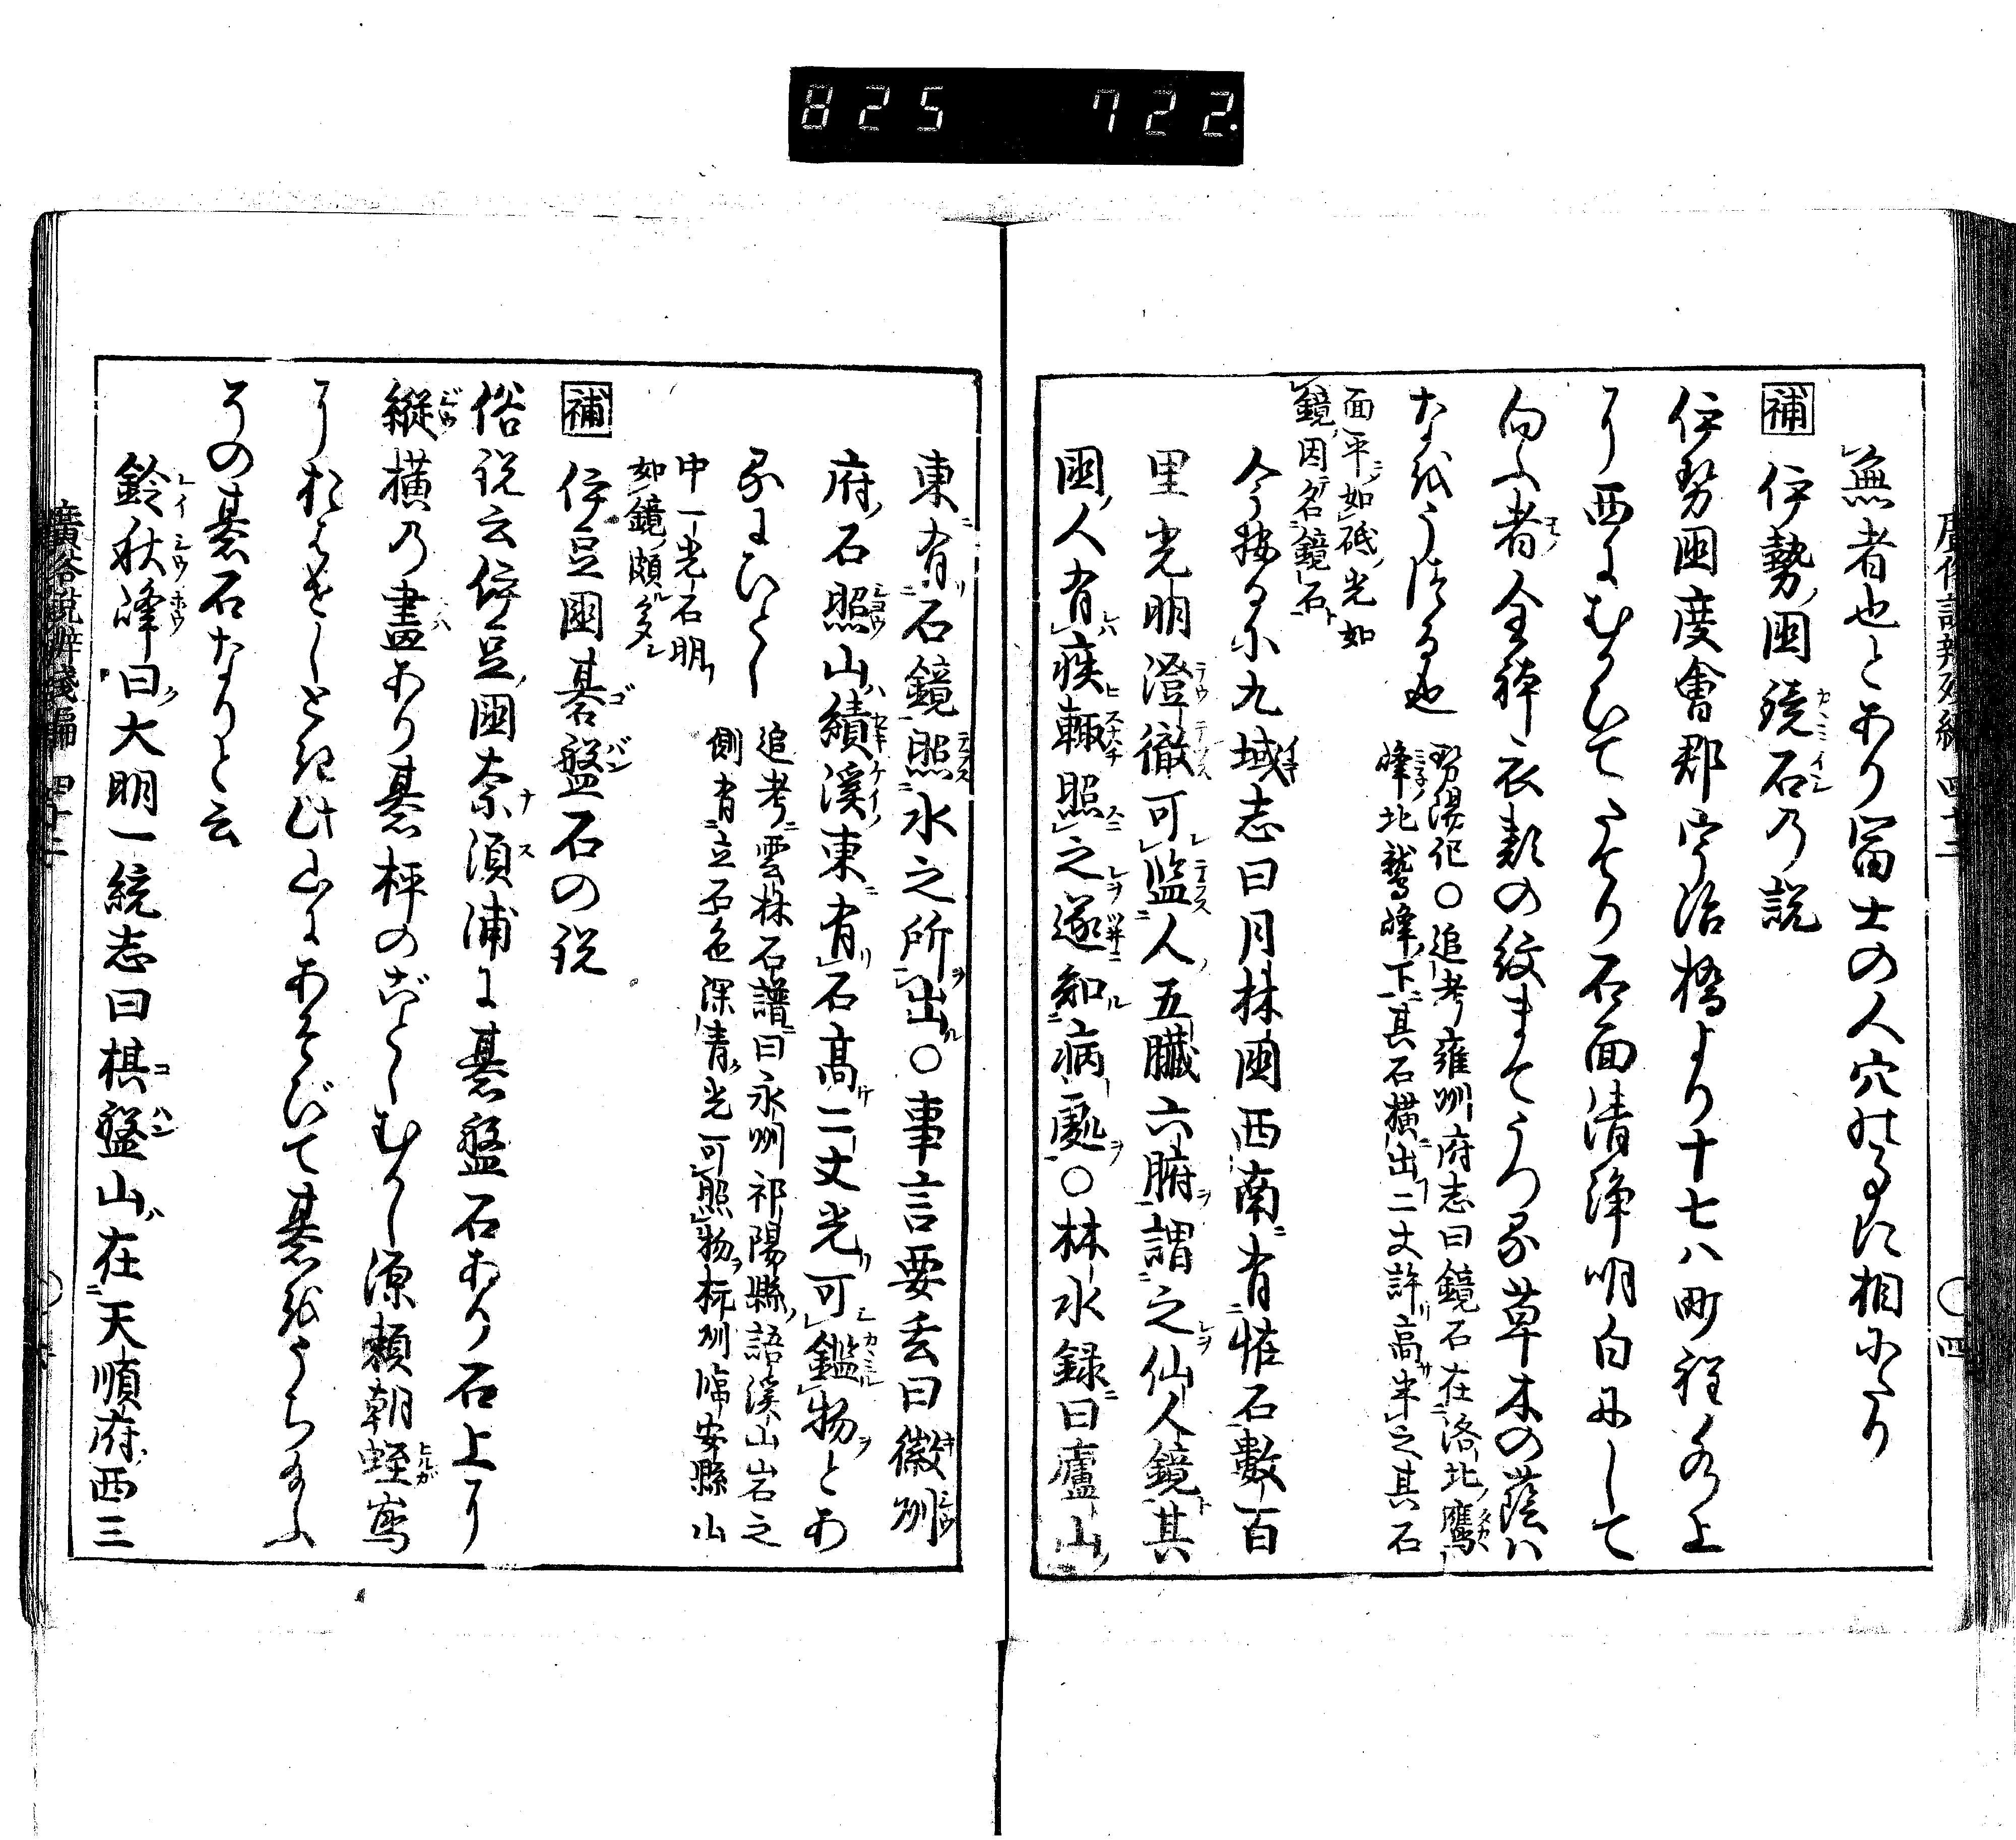 825 722.
無者也とあり冨士の人穴のことに相かたり
補 伊勢ノ国鏡石乃説
伊勢国度會郡宇治橋より十七八町程
西にむかひてたてり石面清浄明白にして
向ふ者全躰衣類の紋まてうつる草木の蔭ハ
なをうつる也
勢陽記〇追考雍州府志曰鏡石在洛ノ北鷹
峰ノ北鷲峰ノ下其石横出二丈許高半之其石
面平如砥光如
鏡因名鏡石
今按るに九域志曰月林国西南有恠石數百
里光明澄徹可監人ノ五臓六腑謂之仙人鏡其
國人有疾輙照之遂知病處〇林水録曰廬山ノ
東有石鏡照水之所出〇事言要玄曰徽州
府ノ石照山ハ績溪ノ東有石高二丈光可鑑物とあ
るにひとし
追考雲林石譜曰永州祁陽縣ノ語溪山岩之
側有立石色深青光可照物杭州臨安縣山
中一光石明
如鏡頗多
補 伊豆國碁盤石の説
俗説云伊豆ノ國奈須浦に碁盤石あり石上に
縦横乃畫あり碁枰のごとしむかし源頼朝蛭嶌
におはせしとき此山にあそびて碁をうち給ふ
その碁石なりと云
鈴秋峰曰大明一統志曰棋盤山在天順府ノ西三
廣俗説辨残編 四十二